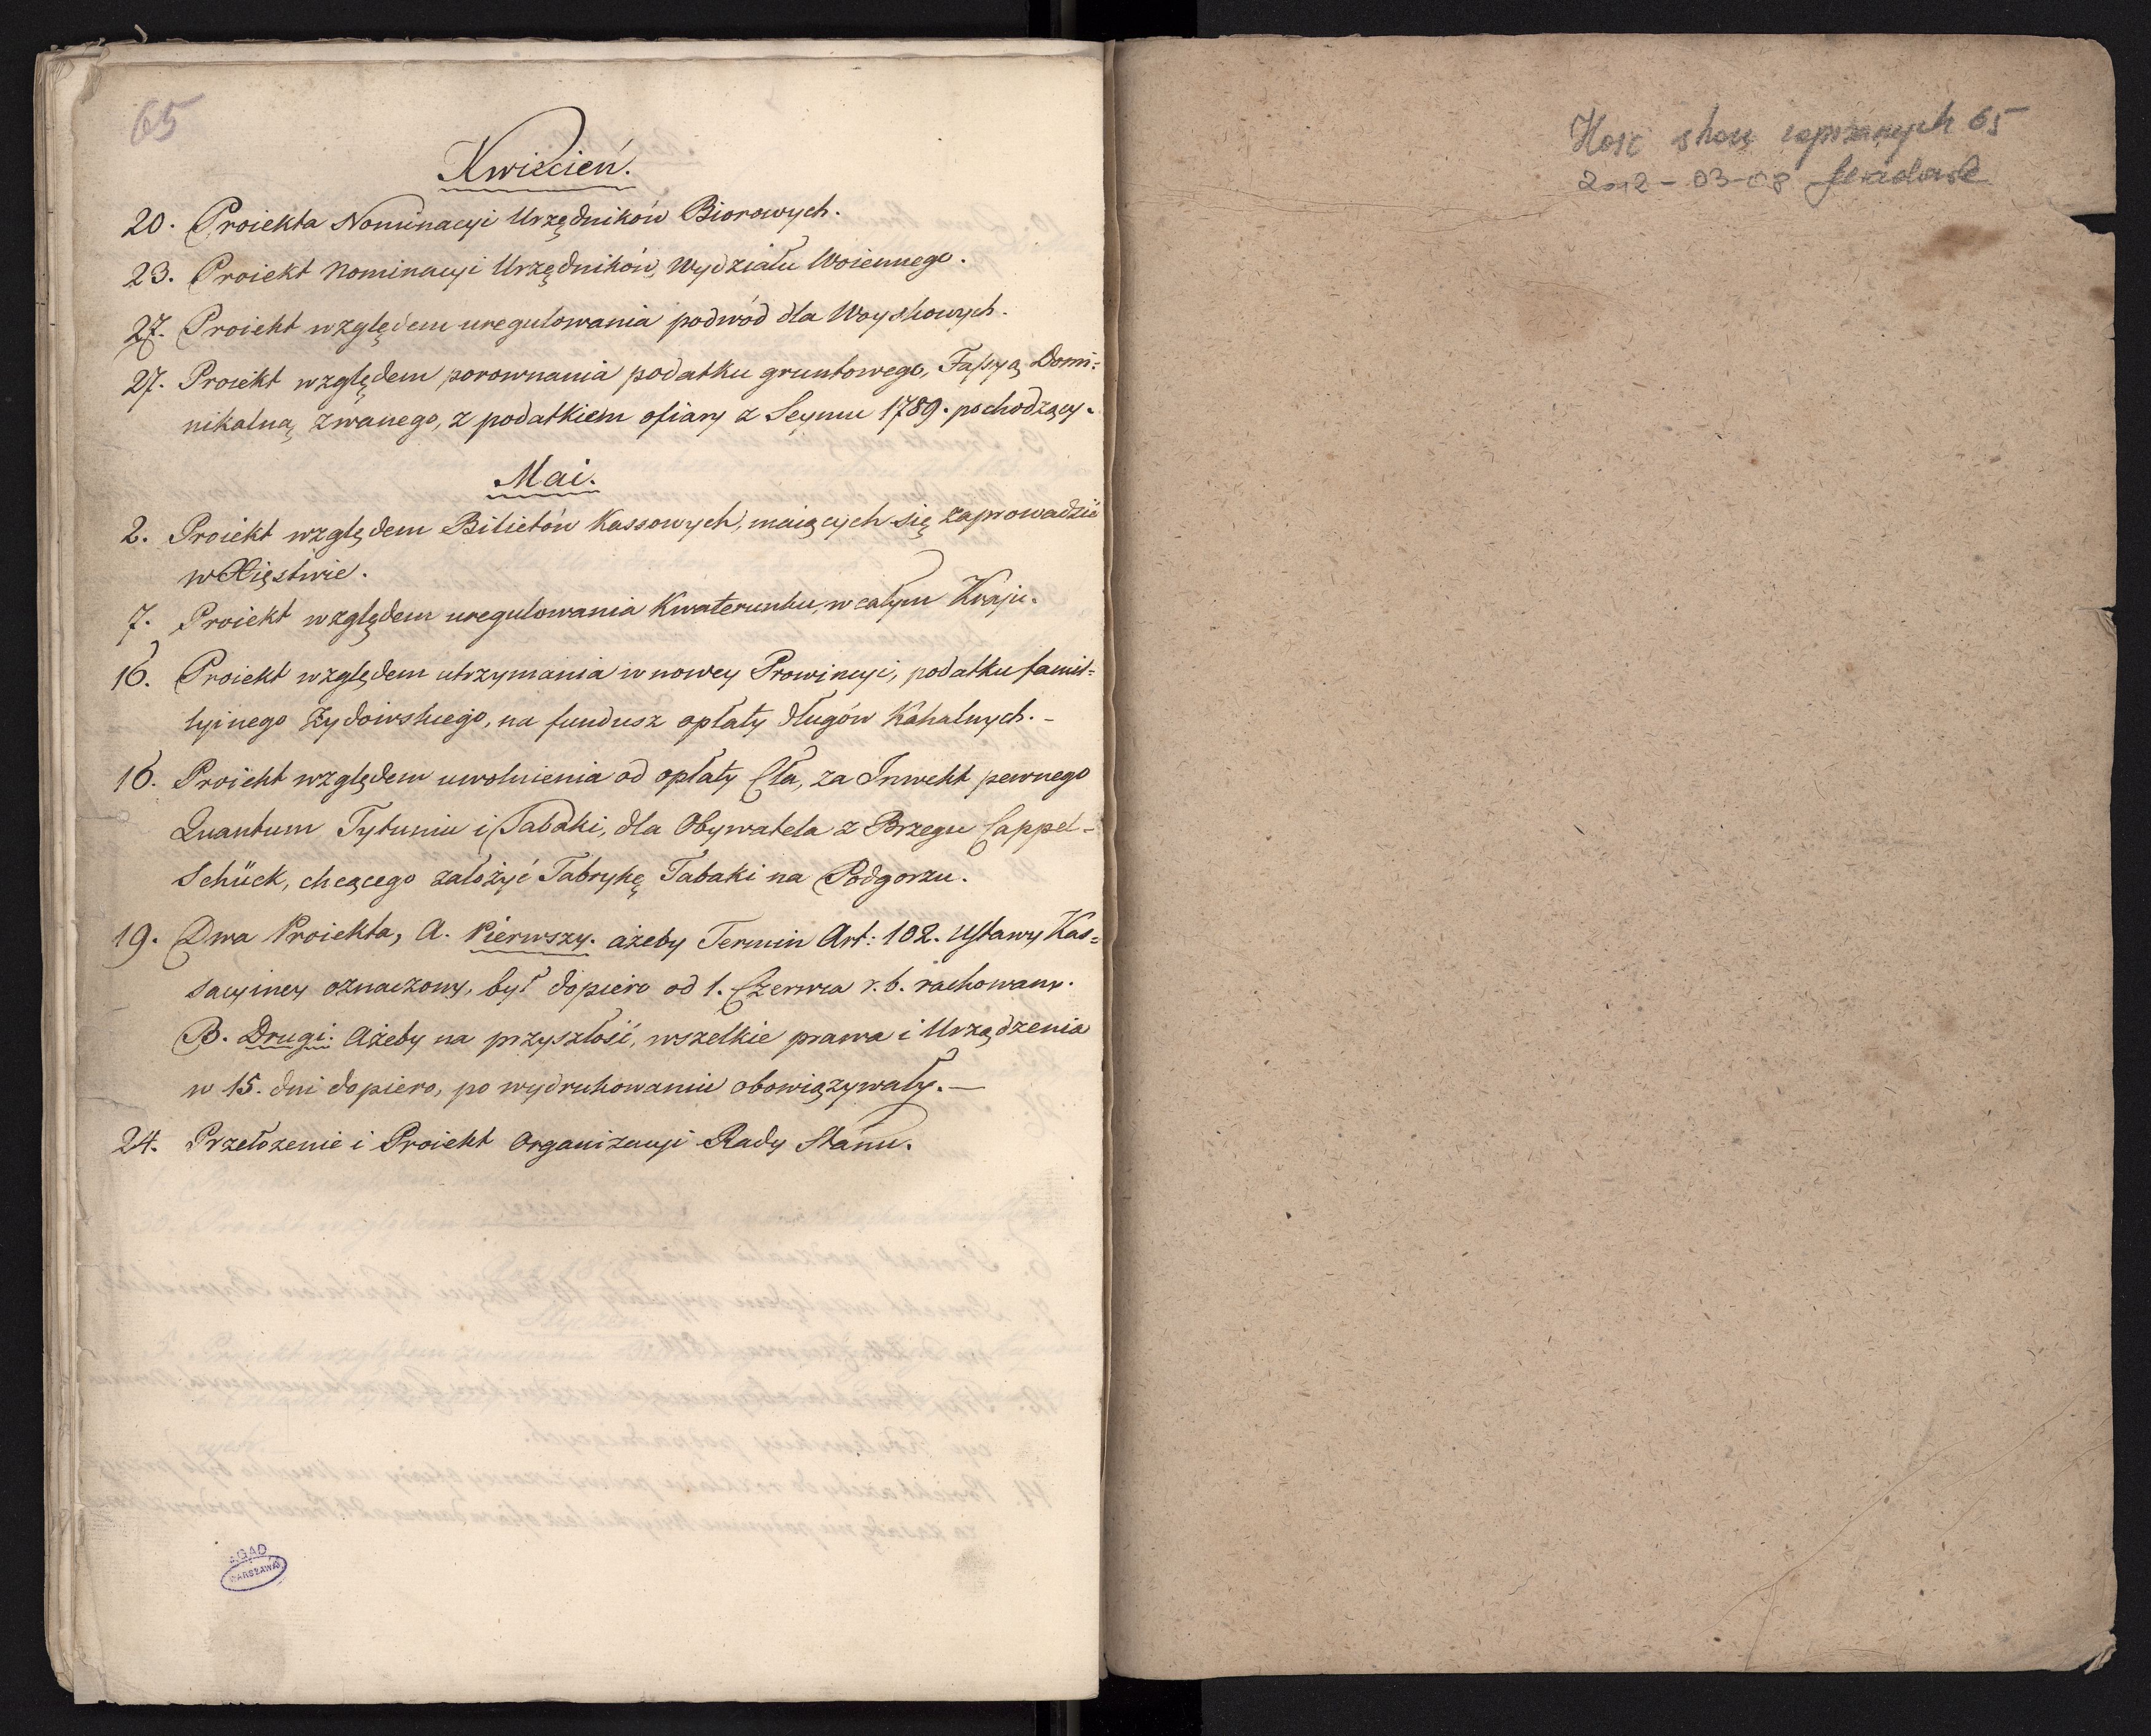 65
Kwiecień.
20. Proiekta Nominacyi Urzędników Biorowych.
23. Proiekt Nominacyi Urzędników, Wydziału Woiennego.
27. Proiekt względem uregulowania podwód dla Woyskowych.
27. Proiekt względem porownania podatku gruntowego, Fassyą Domi=
nikalną zwanego, z podatkiem ofiary z Seymu 1789. pochodzący.
Mai.
2. Proiekt względem Biletów Kassowych, maiących się zaprowadzić
w Xięstwie.
7. Proiekt względem uregulowania Kwaterunku, w całym Kraju.
16. Proiekt względem utrzymania w nowey Prowincyi, podatku famil=
lyinego Żydowskiego, na fundusz opłaty długów Kahalnych. –
16. Proiekt względem uwolnienia od opłaty Cła, za Inwekt pewnego
Quantum Tytuniu i Tabaki, dla Obywatela z Brzegu Cappel-
Schück, chcącego założyć Fabrykę Tabaki na Podgorzu.
19. Dwa Proiekta, A. Pierwszy. ażeby Termin Art: 102. Ustawy Kas=
sacyiney oznaczony, był dopiero od 1. Czerwca r. b. rachowany.
B. Drugi. Ażeby na przyszłość, wszelkie prawa i Urządzenia
w 15. dni dopiero, po wydrukowaniu obowiązywały. —
24. Przełożenie i Proiekt Organizacyi Rady Stanu.
AGAD
WARSZAWA
Ilość stron zapisanych 65
2012-03-08